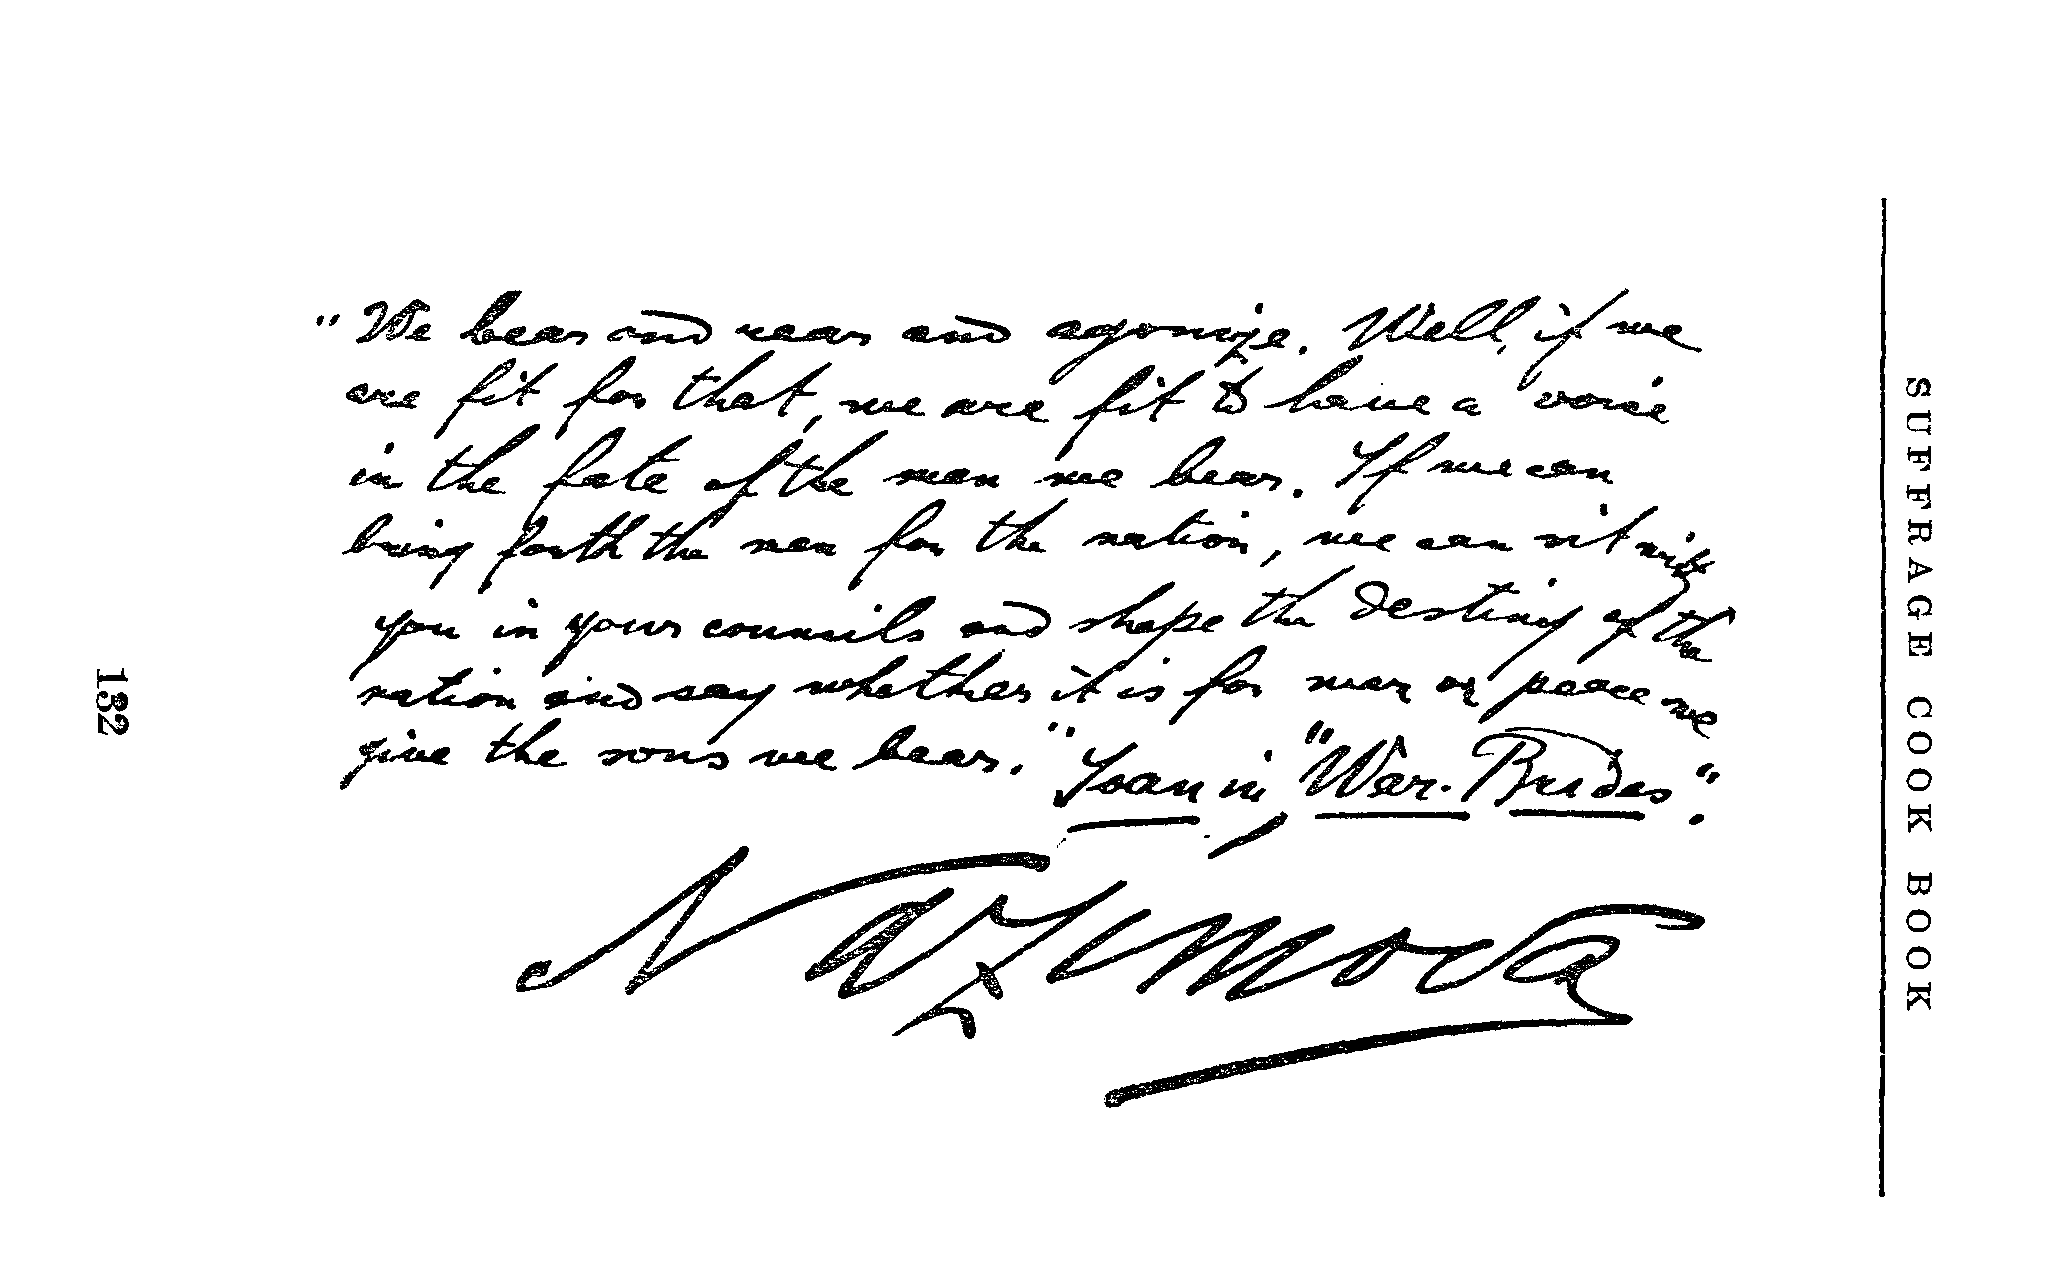 SUFFRAGE COOK BOOK
"We bear and rear and agonize. Well, if we
are fit for that, we are fit to have a voice
in the fate of the men we bear. If we can
bring forth the men for the nation, we can sit with
you in your councils and shape the destiny of the
nation and say whether it is for war or peace we
give the sons we bear."
Joan in "War-Brides".
Nazimova
132